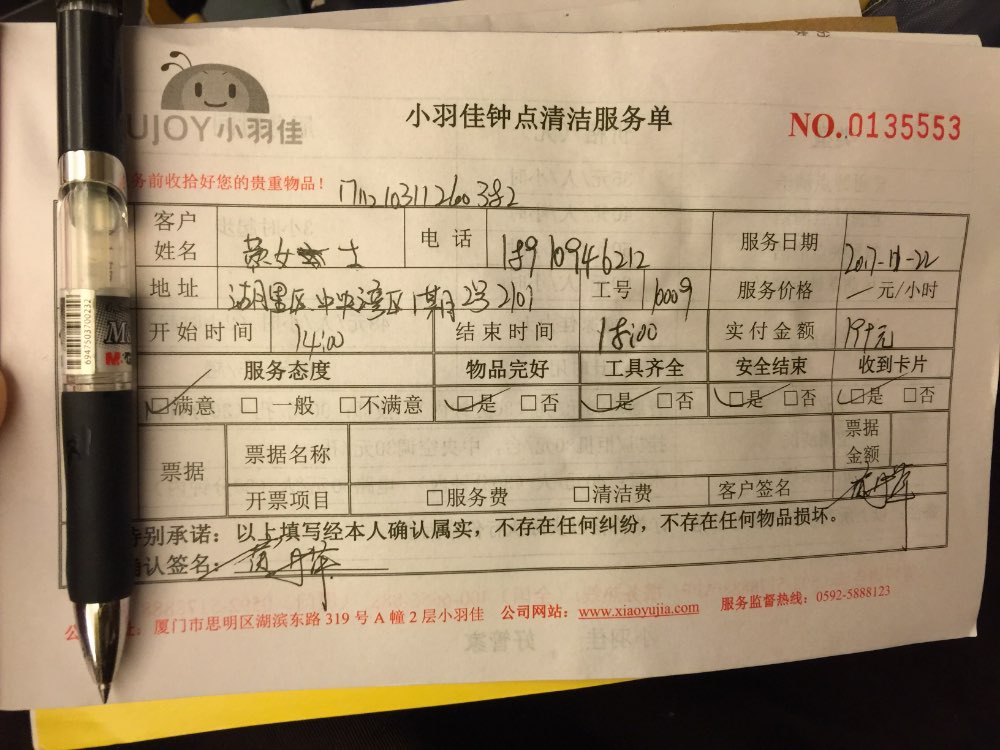 UJOY小羽佳
小羽佳钟点清洁服务单
NO.0135553
务前收拾好您的贵重物品!
客户姓名 女士 电话 18910946212 服务日期 2017-11-22
地址 湖里区中央湾区1期2号2101 工号 16009 服务价格 元/小时
开始时间 14:00 结束时间 18:00 实付金额 199元
服务态度 物品完好 工具齐全 安全结束 收到卡片
□满意 □一般 □不满意 □是 □否 □是 □否 □是 □否 □是 □否
票据 票据名称 票据金额
开票项目 □服务费 □清洁费 客户签名
特别承诺:以上填写经本人确认属实,不存在任何纠纷,不存在任何物品损坏。
确认签名:
厦门市思明区湖滨东路 319 号 A 幢 2 层小羽佳 公司网站:www.xiaoyujia.com 服务监督热线:0592-5888123
M&G
6947503700232